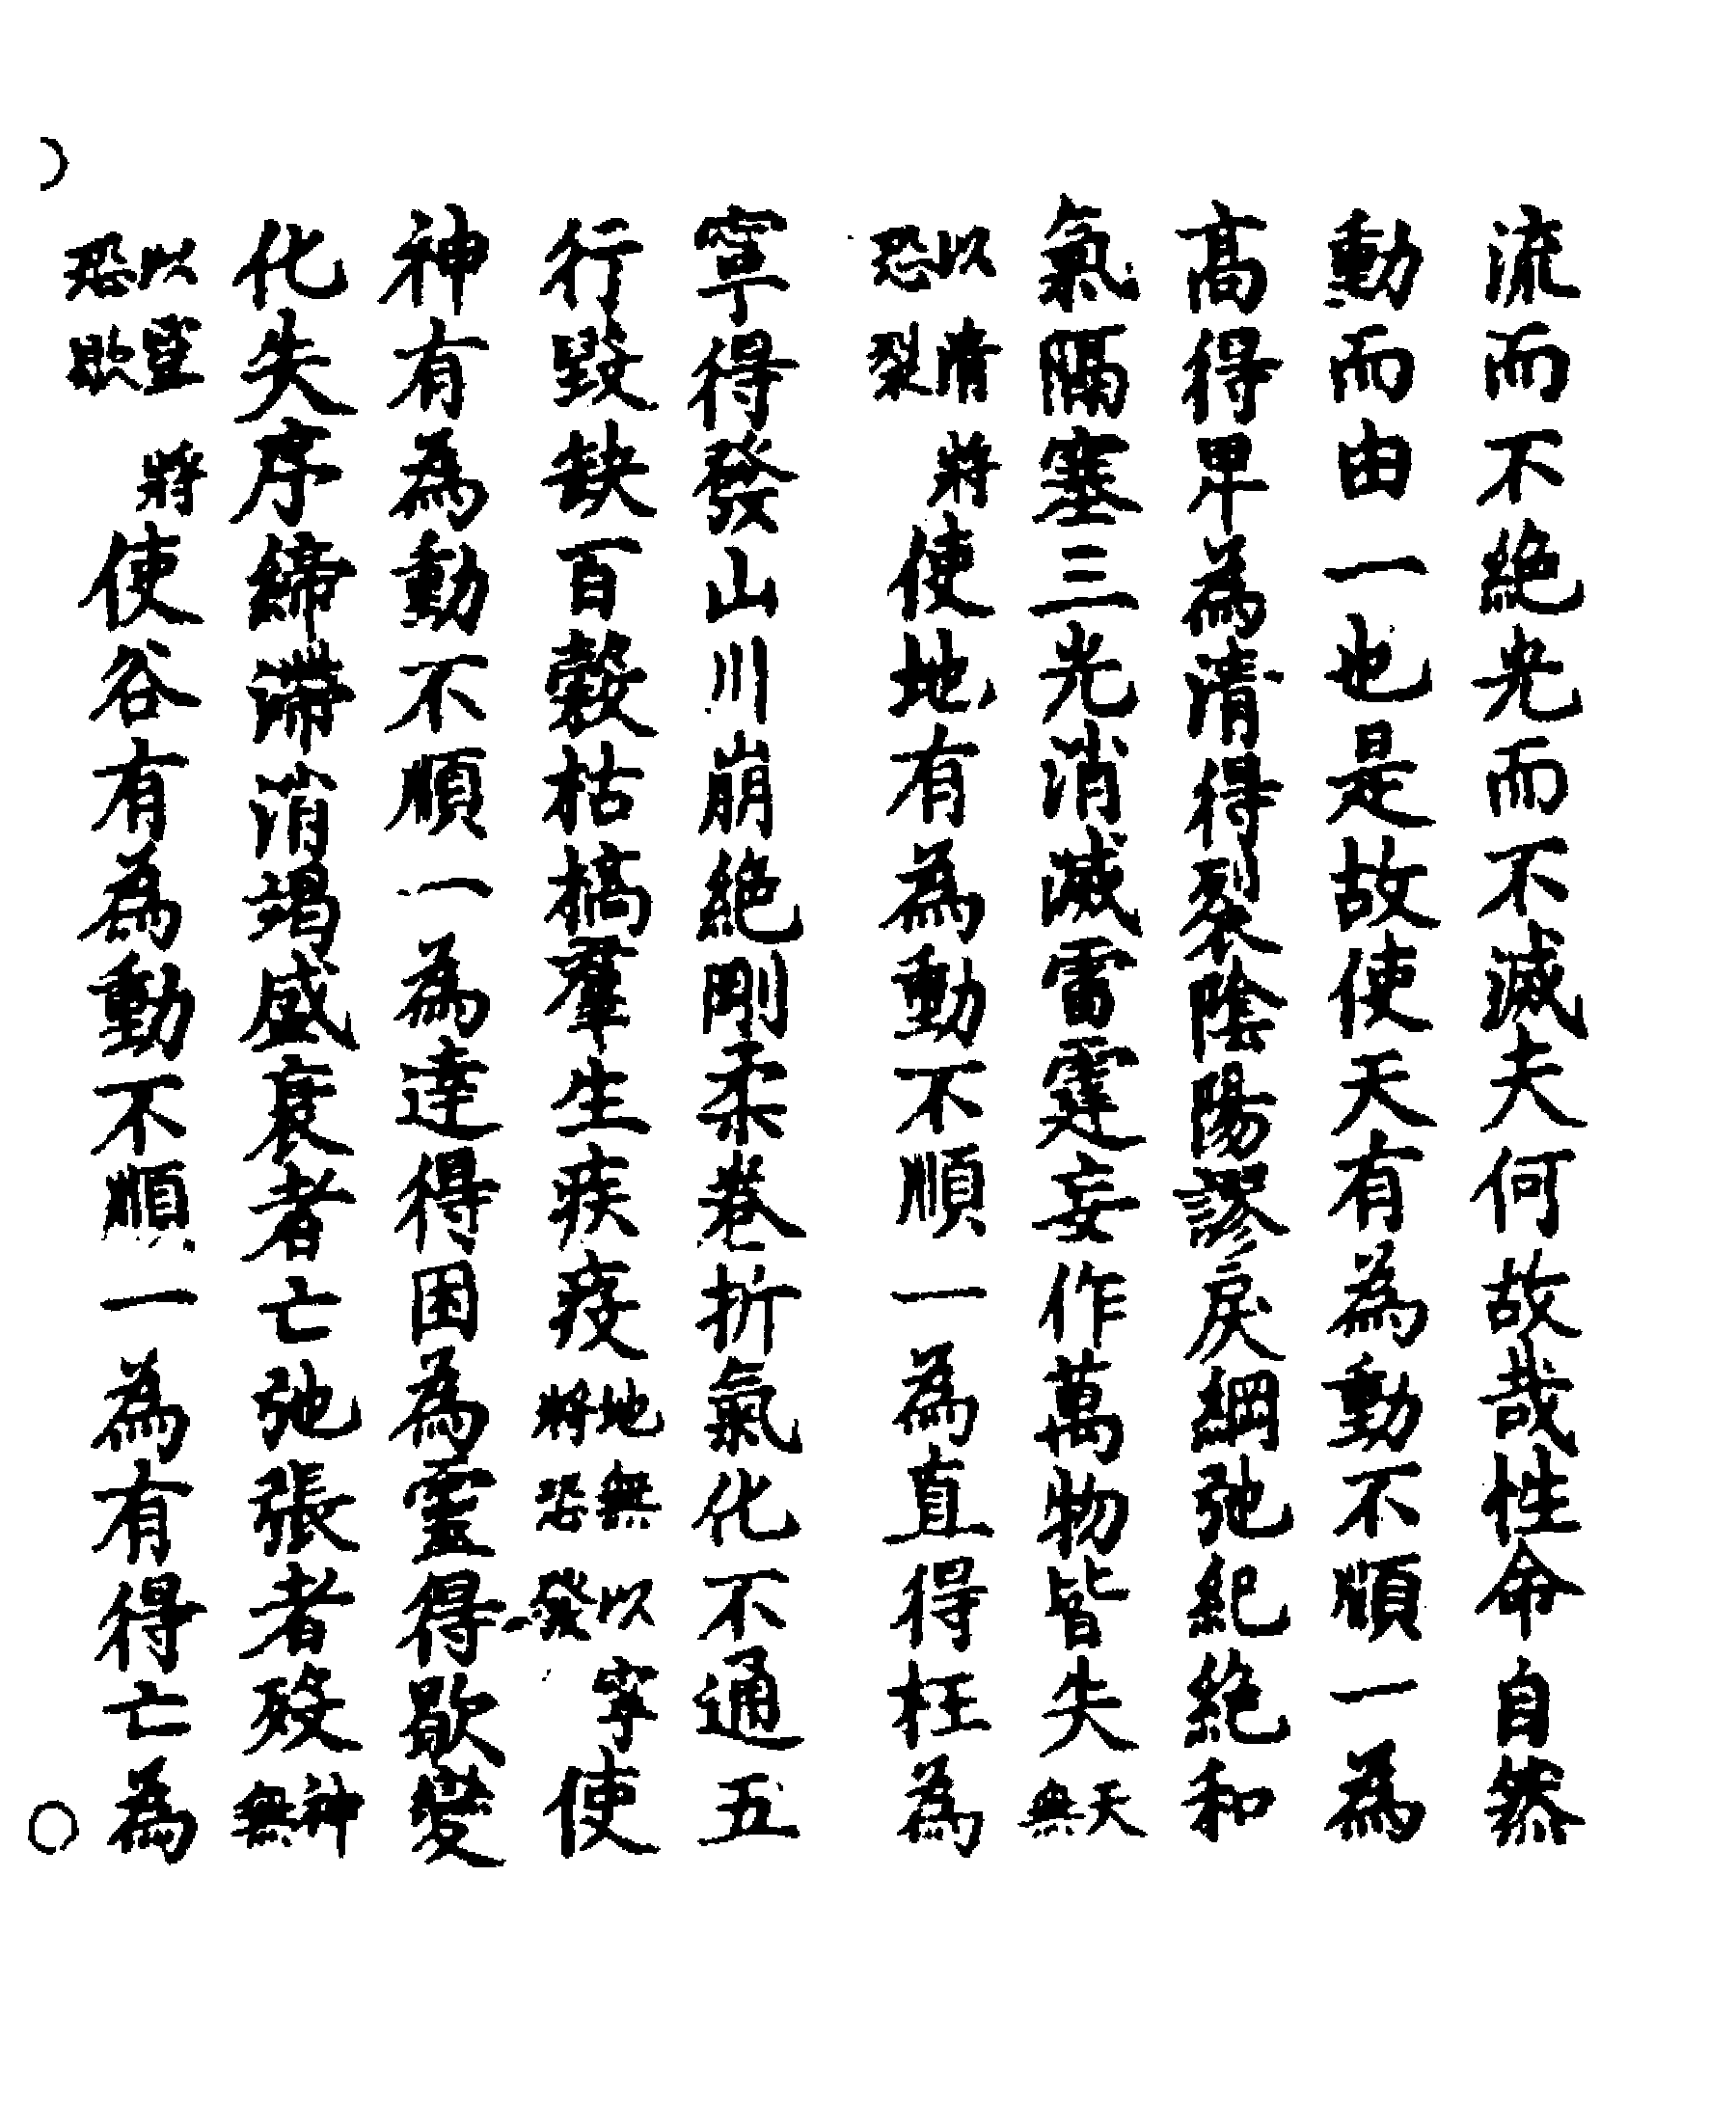 流而不絶光而不滅夫何故哉性命自然
動而由一也是故使天有為動不順一為
髙得卑為清得裂陰陽謬戾綱弛紀絶和
氣隔塞三光消滅雷霆妄作萬物皆失天無
以清將恐裂使地有為動不順一為直得枉為
寧得發山川崩絶剛柔卷折氣化不通五
行毀缺百穀枯槁羣生疾疫地無以寧將恐發使
神有為動不順一為達得困為靈得歇變
化失序締滯消竭盛衰者亡弛張者歿神無
以靈將恐歇使谷有為動不順一為有得亡為